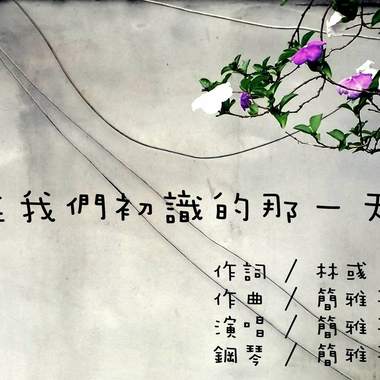 我們初識的那一
作詞 / 林
作曲 / 簡雅
演唱 / 簡雅
鋼琴 / 簡雅